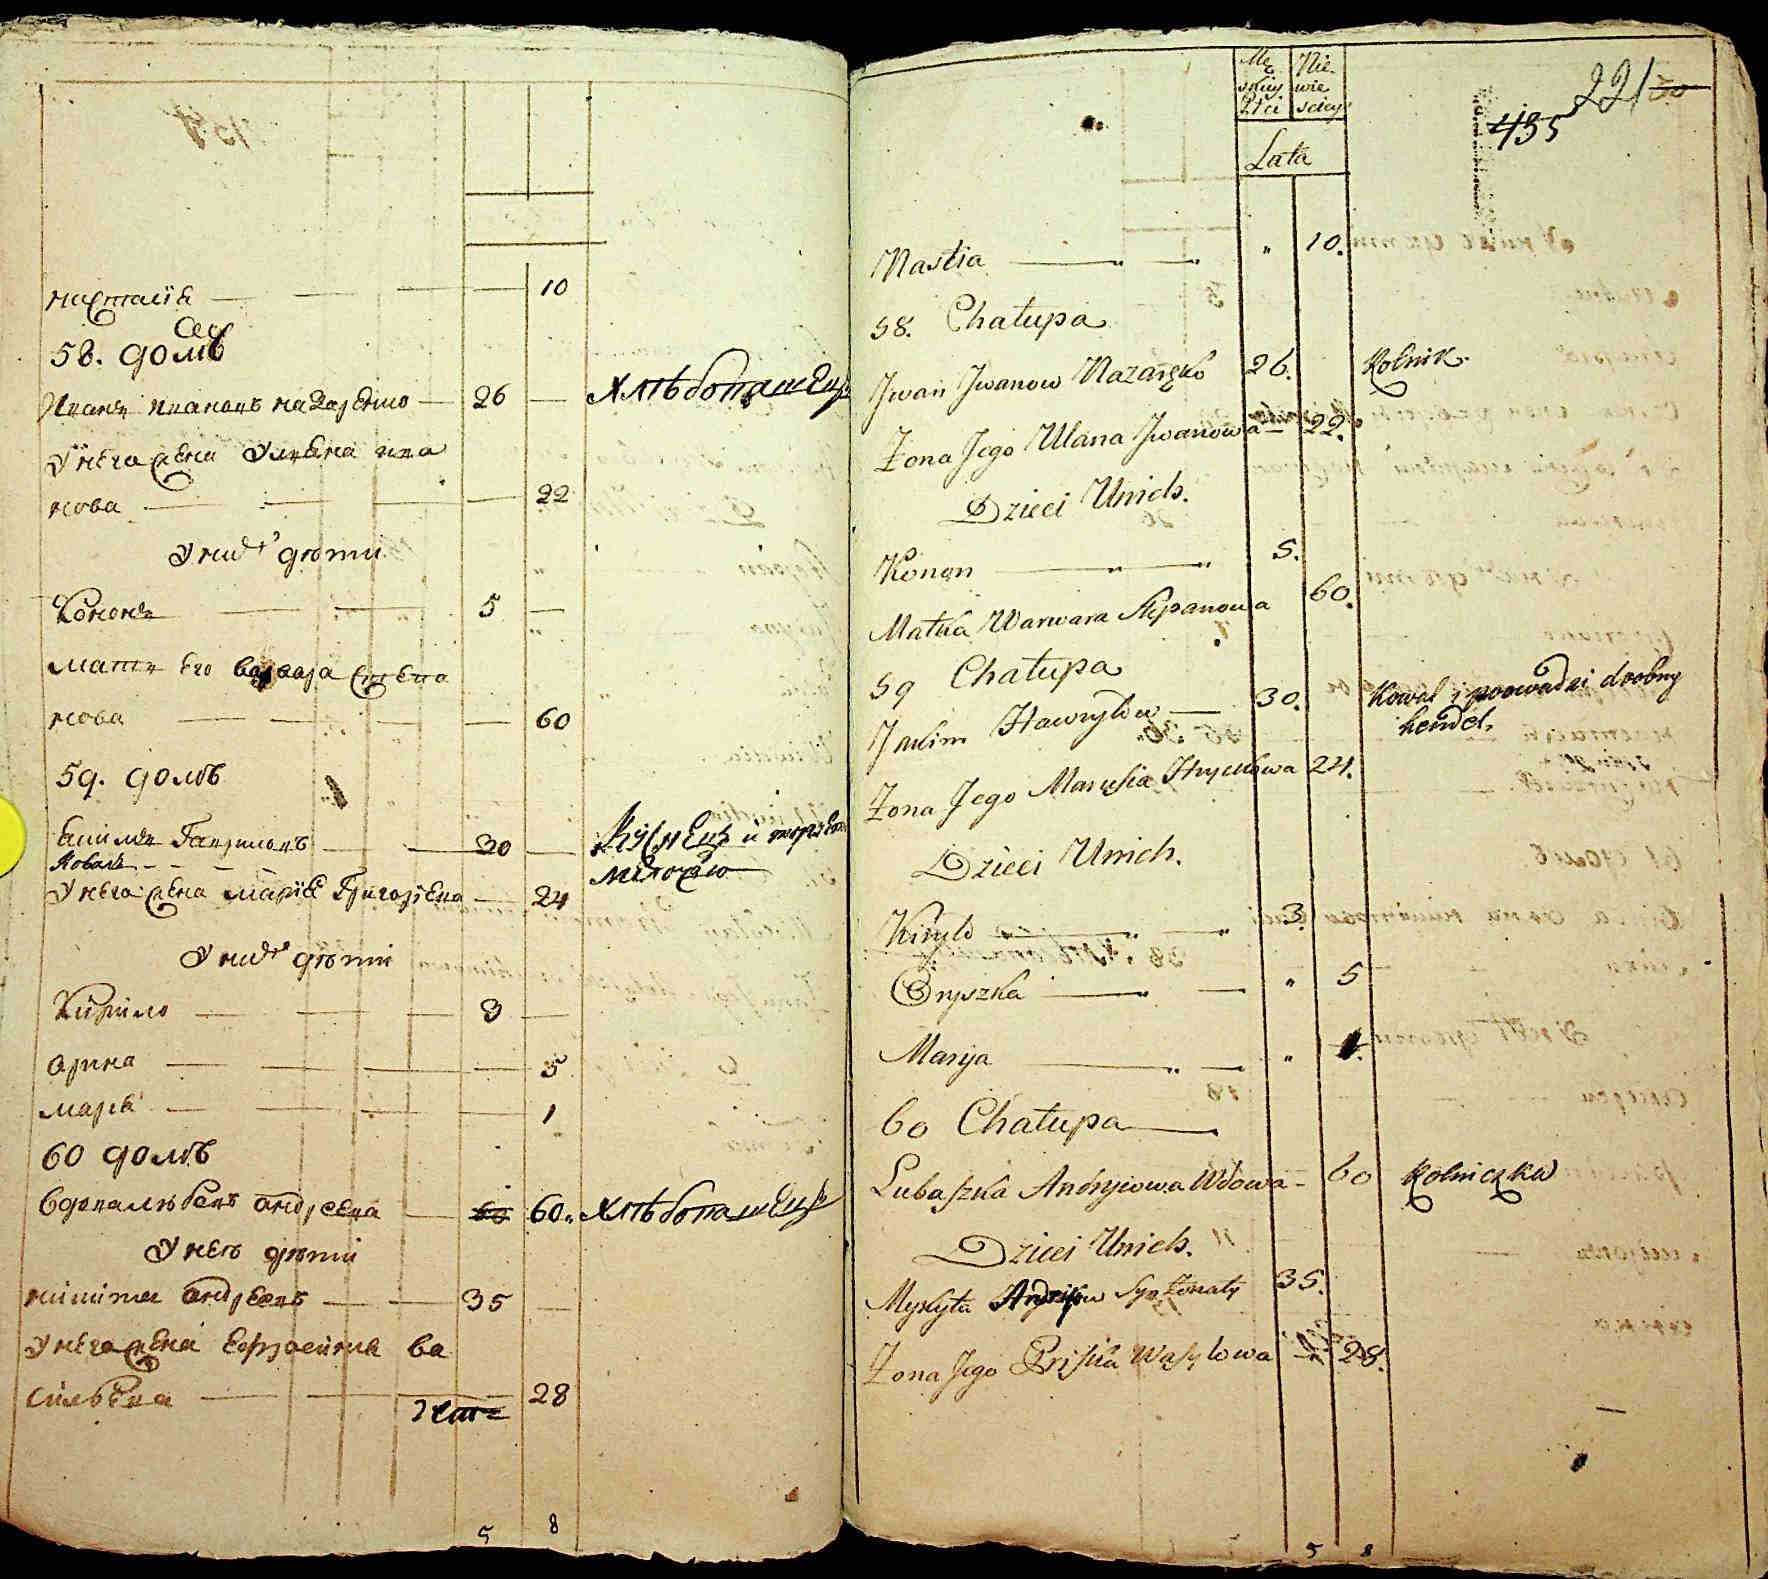 настасія — 10
58. домъ
Иванъ ивановъ назаренко — 26 — хлѣбопашецъ
У него жена Уляна ива
нова — 22
У них дѣти
Кононъ — 5 —
мать его варвара степа
нова — 60
59. домъ
екимъ Гавриловъ — 30 — Кузнецъ и торгъ
Коваль
мелочью
У него жена марія Григорьева — 24
У них дѣти
Кирило — 3 —
арина — 5
марія — 1
60 домъ
вдова любовь андреева — 60 60 хлѣбопашецъ
У нея дѣти
никита андреевъ — 35 —
У него жена ефросинія ва
сильева — 28
5 8
Mę Nie
skiej wie
Płci sciej
Lata
221
435
Nastia — " — " 10.
58. Chałupa
Jwan Jwanow Nazaręko 26. Rolnik.
Żona Jego Ulana Jwanowa — 22.
Dzieci Unich.
Konon — 5.
Matka Warwara Stepanowa 60.
59 Chałupa
Jakim Hawryłow — 30. Kowal i prowadzi drobny
hendel.
Żona Jego Marysia Hryckowa 24.
Dzieci Unich.
Kiryło — 3.
Oryszka — " 5
Marya — " 1.
60 Chałupa
Lubaszka Andryiowa Wdowa — 60 Rolniczka
Dzieci Unich.
Mykyta Andryiow Syn Żonaty 35.
Żona Jego Pryska Wasylowa — 28.
5 8